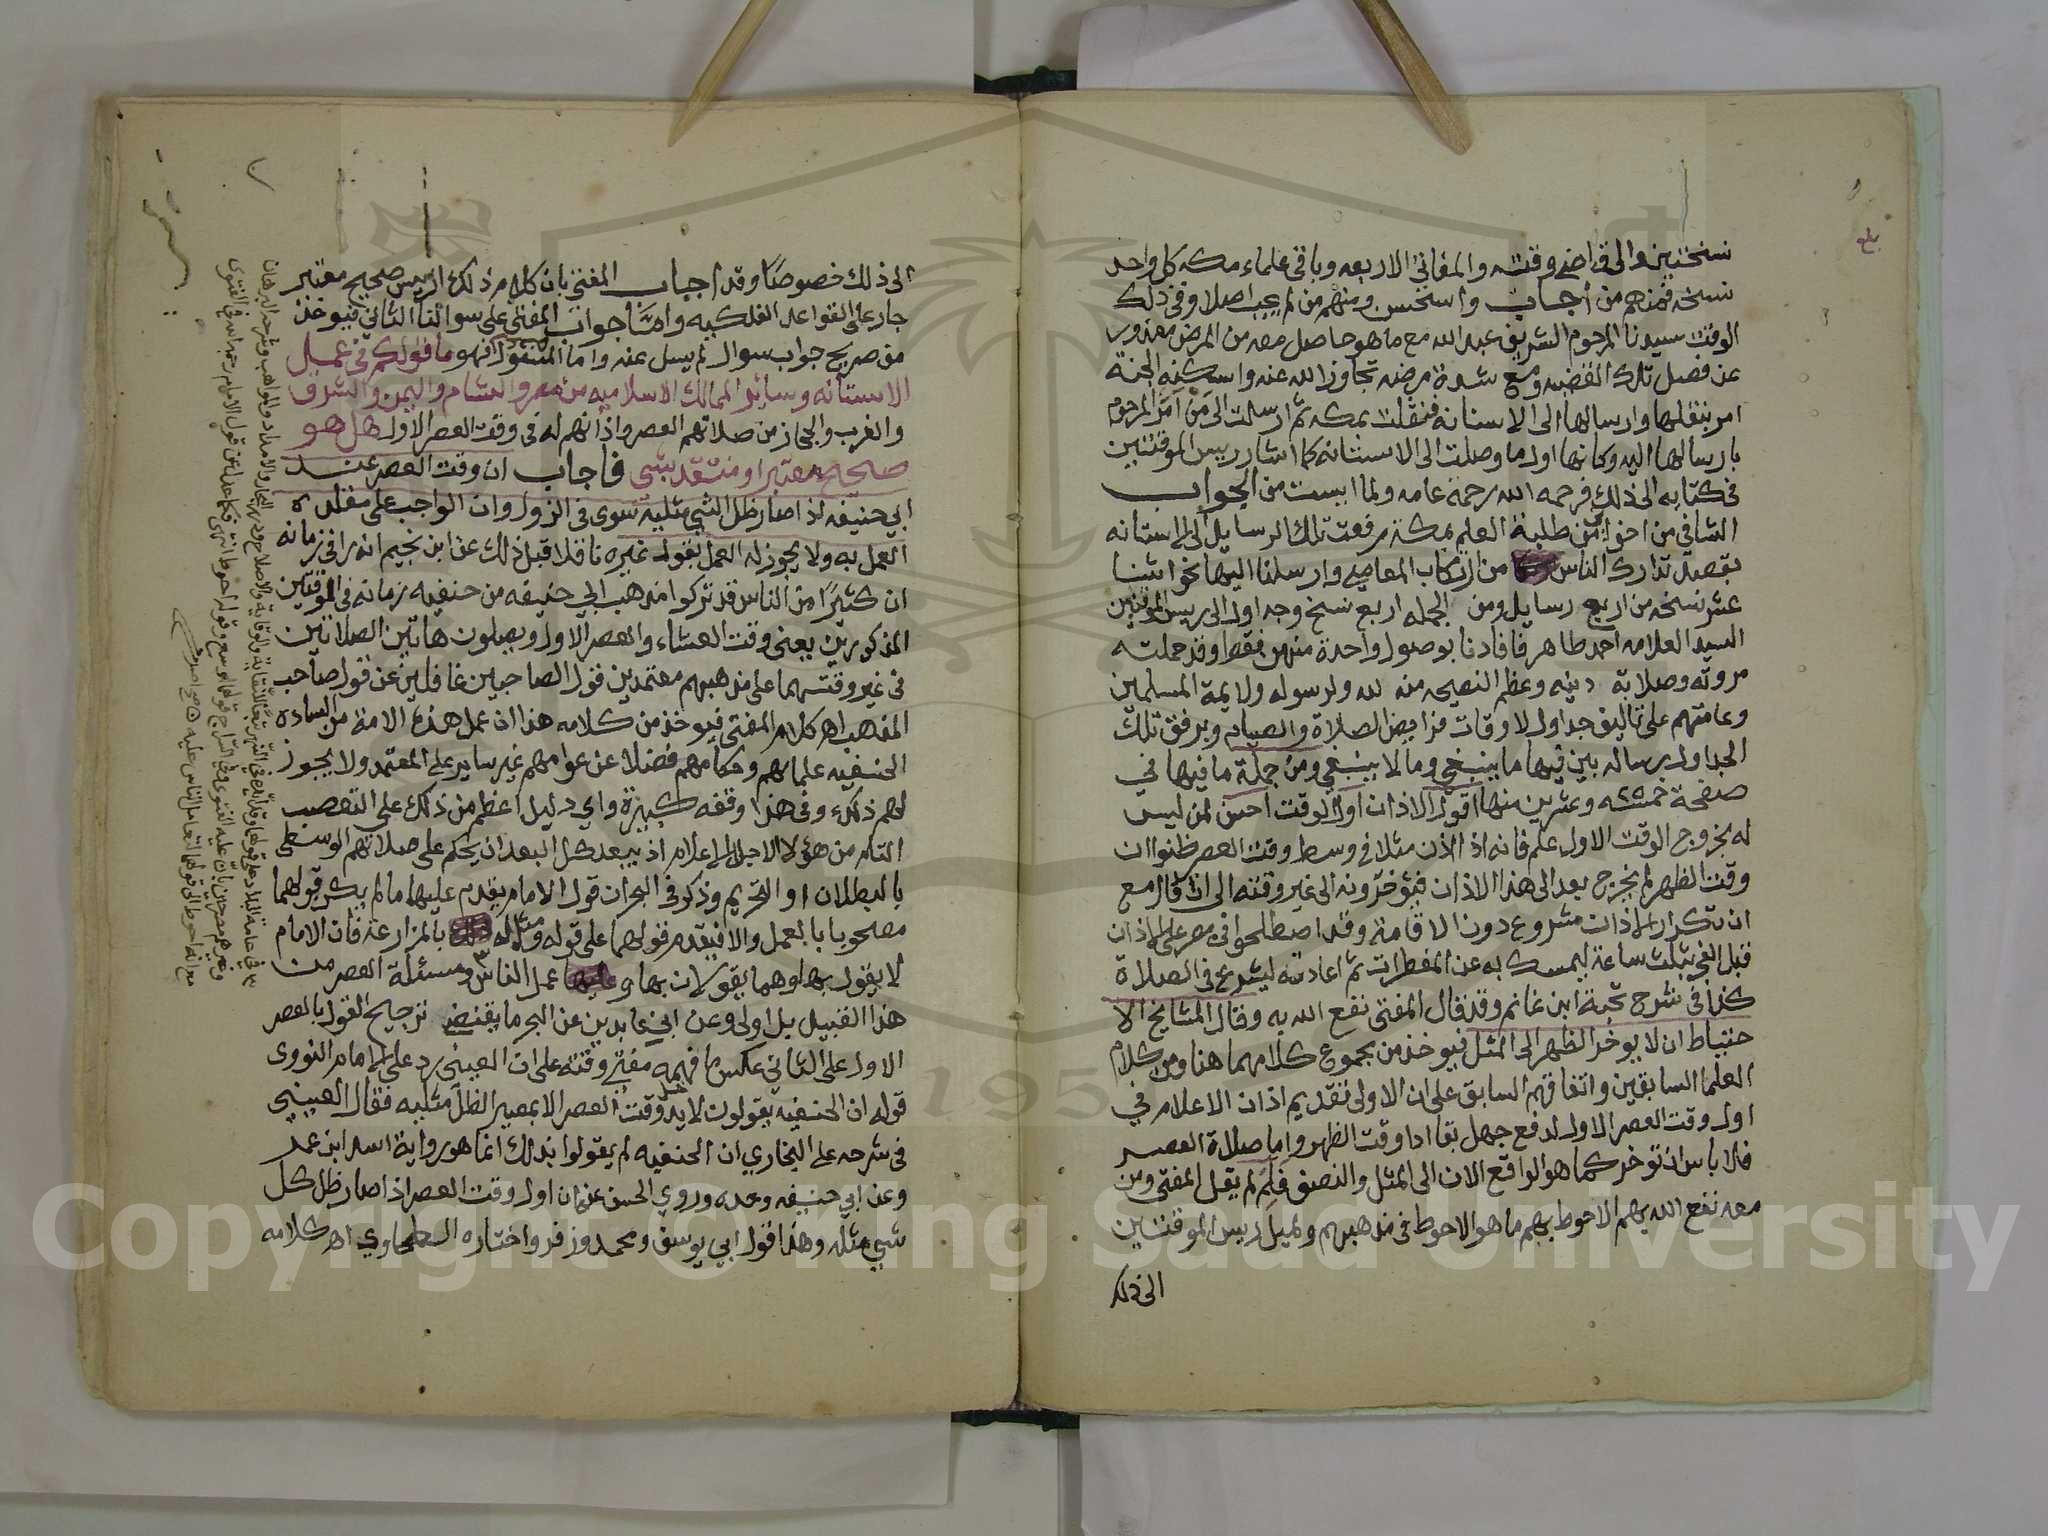 نسختين والى قاضي وقته والمفاتي الاربعه وباقي علماء مكه كل واحد
نسخه فمنهم من أجاب واستحسن ومنهم من لم يجب اصلا وفي ذلك
الوقت سيدنا المرحوم الشريف عبد الله مع ما هو حاصل معه من المرض معذور
عن فصل تلك القضيه ومع شدة مرضه تجاوز الله عنه واسكنه الجنة
امر بنقلها وارسالها الى الاستانه فنقلت بمكه ثم ارسلت الى من أمر المرحوم
بارسالها اليه وكانها اول ما وصلت الى الاستانه كما اشار ريس الموقتين
في كتابه الى ذلك فرحمه الله رحمة عامه ولما ايست من الجواب
الشافي من اخواني من طلبة العلم بمكة رفعت تلك الرسايل الى الاستانه
بقصد تدارك الناس من ارتكاب المعاصي وارسلنا اليها نحو اثنا
عشر نسخه من اربع رسايل ومن الجمله اربع نسخ وجه اول الى ريس الموقتين
السيد العلامه احمد طاهر فافادنا بوصول واحدة منهن فقط وقد حملته
مروته وصلابة دينه وعظم النصيحه منه لله ولرسوله ولايمة المسلمين
وعامتهم على تاليف جداول لاوقات فرايض الصلاة والصيام وبرفق تلك
الجداول رساله بين فيها ما ينبغي وما لا ينبغي ومن جملة ما فيها في
صفحة خمسه وعشرين منها اقول الاذان اول الوقت احسن لمن ليس
له بخروج الوقت الاول علم فانه اذا اذن مثلا في وسط وقت العصر ظنوا ان
وقت الظهر لم يخرج بعد الى هذا الاذان فيؤخرونه الى غير وقته الى ان قال مع
ان تكرار الاذان مشروع دون الاقامة وقد اصطلحوا في مصر على الاذان
قبل الفجر بثلث ساعة ليمسك به عن المفطرات ثم اعادته ليشرع في الصلاة
كذا في شرح نخبة ابن غانم وقد قال المفتي نفع الله به وقال المشايخ الا
حتياط ان لا يوخر الظهر الى المثل فيوخذ من مجموع كلامهما هنا ومن كلام
العلما السابقين واتفاقهم السابق على ان الاولى تقديم اذان الاعلام في
اول وقت العصر الاول لدفع جهل بقاء اداء وقت الظهر واما صلاة العصر
فلا باس ان توخر كما هو الواقع الان الى المثل والنصف فلم لم يقل المفتي ومن
معه نفع الله بهم الاحوط بهم ما هو الاحوط في مذهبهم ولم يل ريس الموقتين
الى ذلك
الى ذلك خصوصًا وقد اجاب المفتي بان كلام ذلك الريس صحيح معتبر
جار على القواعد الفلكيه وامّا جواب المفتي على سوالنا الثاني فيوخذ
من صريح جواب سوال لم يسل عنه واما المنقول فهو ما قولكم في عمل
الاستانه وساير الممالك الاسلاميه من مصر والشام واليمن والشرق
والغرب والحجاز من صلاتهم العصر واذانهم له في وقت العصر الاول هل هو
صحيح معتبر او منتقد بشي فاجاب ان وقت العصر عند
ابي حنيفه اذا صار ظل الشي مثليه سوى في الزوال وان الواجب على مقلده
العمل به ولا يجوز له العمل بقول غيره ناقلا قبل ذلك عن ابن نجيم انه راى في زمانه
ان كثيرًا من الناس قد تركوا مذهب ابي حنيفه من حنفيه زمانه في الوقتين
المذكورين يعني وقت العشاء والعصر الاول ويصلون هاتين الصلاتين
في غير وقتهما على مذهبهم معتمدين قول الصاحبين غافلين عن قول صاحب
المذهب اهـ كلام المفتي فيوخذ من كلامه هذا ان عمل هذه الامة من السادة
الحنفيه علمايهم وحكامهم فضلا عن عوامهم غير ساير على المعتمد ولا يجوز
لهم ذلك وفي هذا وقفه كبيرة واي دليل اعظم من ذلك على التعصب
التام من هؤلاء الاجلاء الاعلام اذ يبعد كل البعد ان يحكم على صلاتهم الوسطى
بالبطلان او التحريم وذكر في البحر ان قول الامام يقدم عليها ما لم يكن قولهما
مصحوبا بالعمل والا فيقدم قولهما على قوله ومثله بالمزارعة فان الامام
لا يقول بها وهما يقولان بها و عمل الناس ومسئلة العصر من
هذا القبيل بل اولى وعن ابن عابدين عن البحر ما يقتضي ترجيح القول بالعصر
الاول على الثاني عكس ما فهمه مفتي وقته على ان العيني رد على الامام النووي
قوله ان الحنفيه يقولون لا يدخل وقت العصر الا بمصير الظل مثليه فقال العيني
في شرحه على البخاري ان الحنفيه لم يقولوا بذلك انما هو رواية اسد ابن عمر
وعن ابي حنيفه وحده وروى الحسن عنه ان اول وقت العصر اذا صار ظل كل
شي مثله وهذا قول ابي يوسف ومحمد وزفر واختاره الطحاوي اهـ كلامه